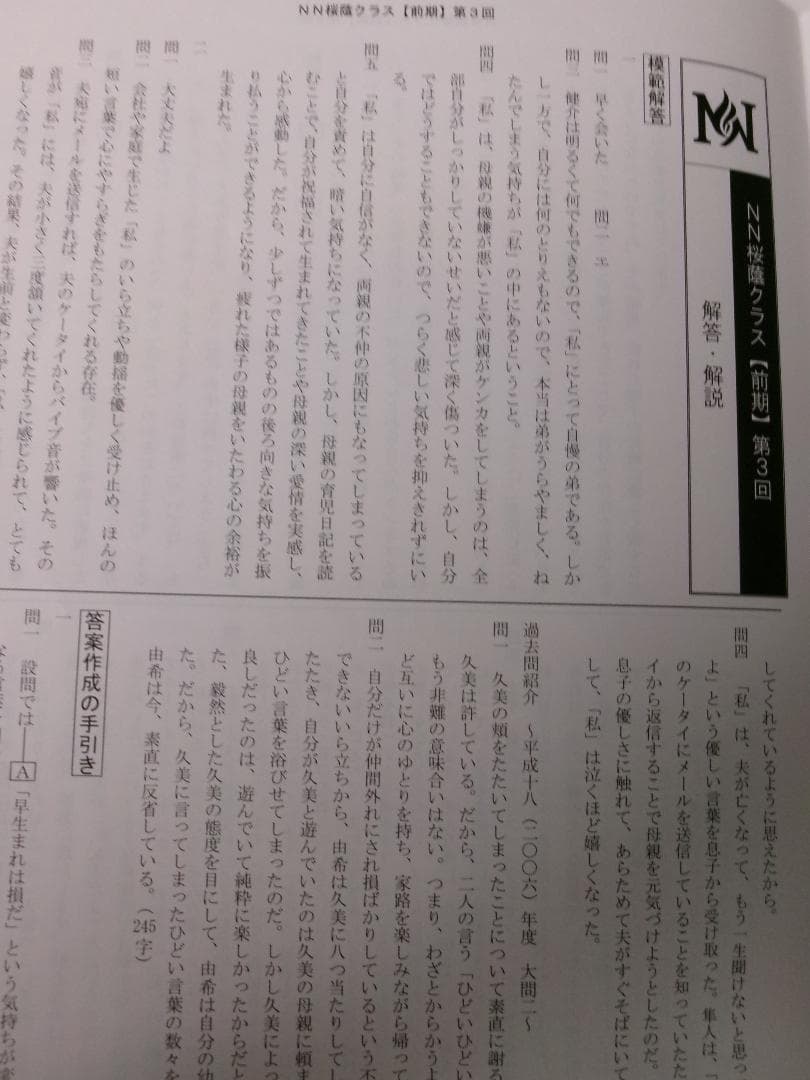 NN桜蔭クラス【前期】第3回
NN桜蔭クラス【前期】第3回
解答・解説
模範解答
一
問一 早く会いた 問二 エ
問三 健介は明るくて何でもできるので、「私」にとって自慢の弟である。しか
し一方で、自分には何のとりえもないので、本当は弟がうらやましく、ね
たんでしまう気持ちが「私」の中にあるということ。
問四 「私」は、母親の機嫌が悪いことや両親がケンカをしてしまうのは、全
部自分がしっかりしていないせいだと感じて深く傷ついた。しかし、自分
ではどうすることもできないので、つらく悲しい気持ちを抑えきれずにい
る。
問五 「私」は自分に自信がなく、両親の不仲の原因にもなってしまっている
と自分を責めて、暗い気持ちになっていた。しかし、母親の育児日記を読
むことで、自分が祝福されて生まれてきたことや母親の深い愛情を実感し、
心から感動した。だから、少しずつではあるものの後ろ向きな気持ちを振
り払うことができるようになり、疲れた様子の母親をいたわる心の余裕が
生まれた。
二
問一 大丈夫だよ
問二 会社や家庭で生じた「私」のいら立ちや動揺を優しく受け止め、ほんの
短い言葉で心にやすらぎをもたらしてくれる存在。
問三 夫宛にメールを送信すれば、夫のケータイからバイブ音が響いた。その
音が「私」には、夫が小さく三度頷いてくれたように感じられて、とても
嬉しくなった。その結果、夫が生前と変わらず、「私
してくれているように思えたから。
問四 「私」は、夫が亡くなって、もう一生聞けないと思っ
よ」という優しい言葉を息子から受け取った。隼人は、「
のケータイにメールを送信していることを知っていたた
イから返信することで母親を元気づけようとしたのだ。
息子の優しさに触れて、あらためて夫がすぐそばにいて
して、「私」は泣くほど嬉しくなった。
過去問紹介 〜平成十八（二〇〇六）年度 大問二〜
問一 久美の頬をたたいてしまったことについて素直に謝る
久美は許している。だから、二人の言う「ひどいひどい
もう非難の意味合いはない。つまり、わざとからかうよ
ど互いに心のゆとりを持ち、家路を楽しみながら帰って
問二 自分だけが仲間外れにされ損ばかりしているという不
できないいら立ちから、由希は久美に八つ当たりしてし
たたき、自分が久美と遊んでいたのは久美の母親に頼ま
ひどい言葉を浴びせてしまったのだ。しかし久美によっ
良しだったのは、遊んでいて純粋に楽しかったからだと
た、毅然とした久美の態度を目にして、由希は自分の幼
た。だから、久美に言ってしまったひどい言葉の数々を
由希は今、素直に反省している。（245字）
答案作成の手引き
一
問一 設問では――A「早生まれは損だ」という気持ちが変